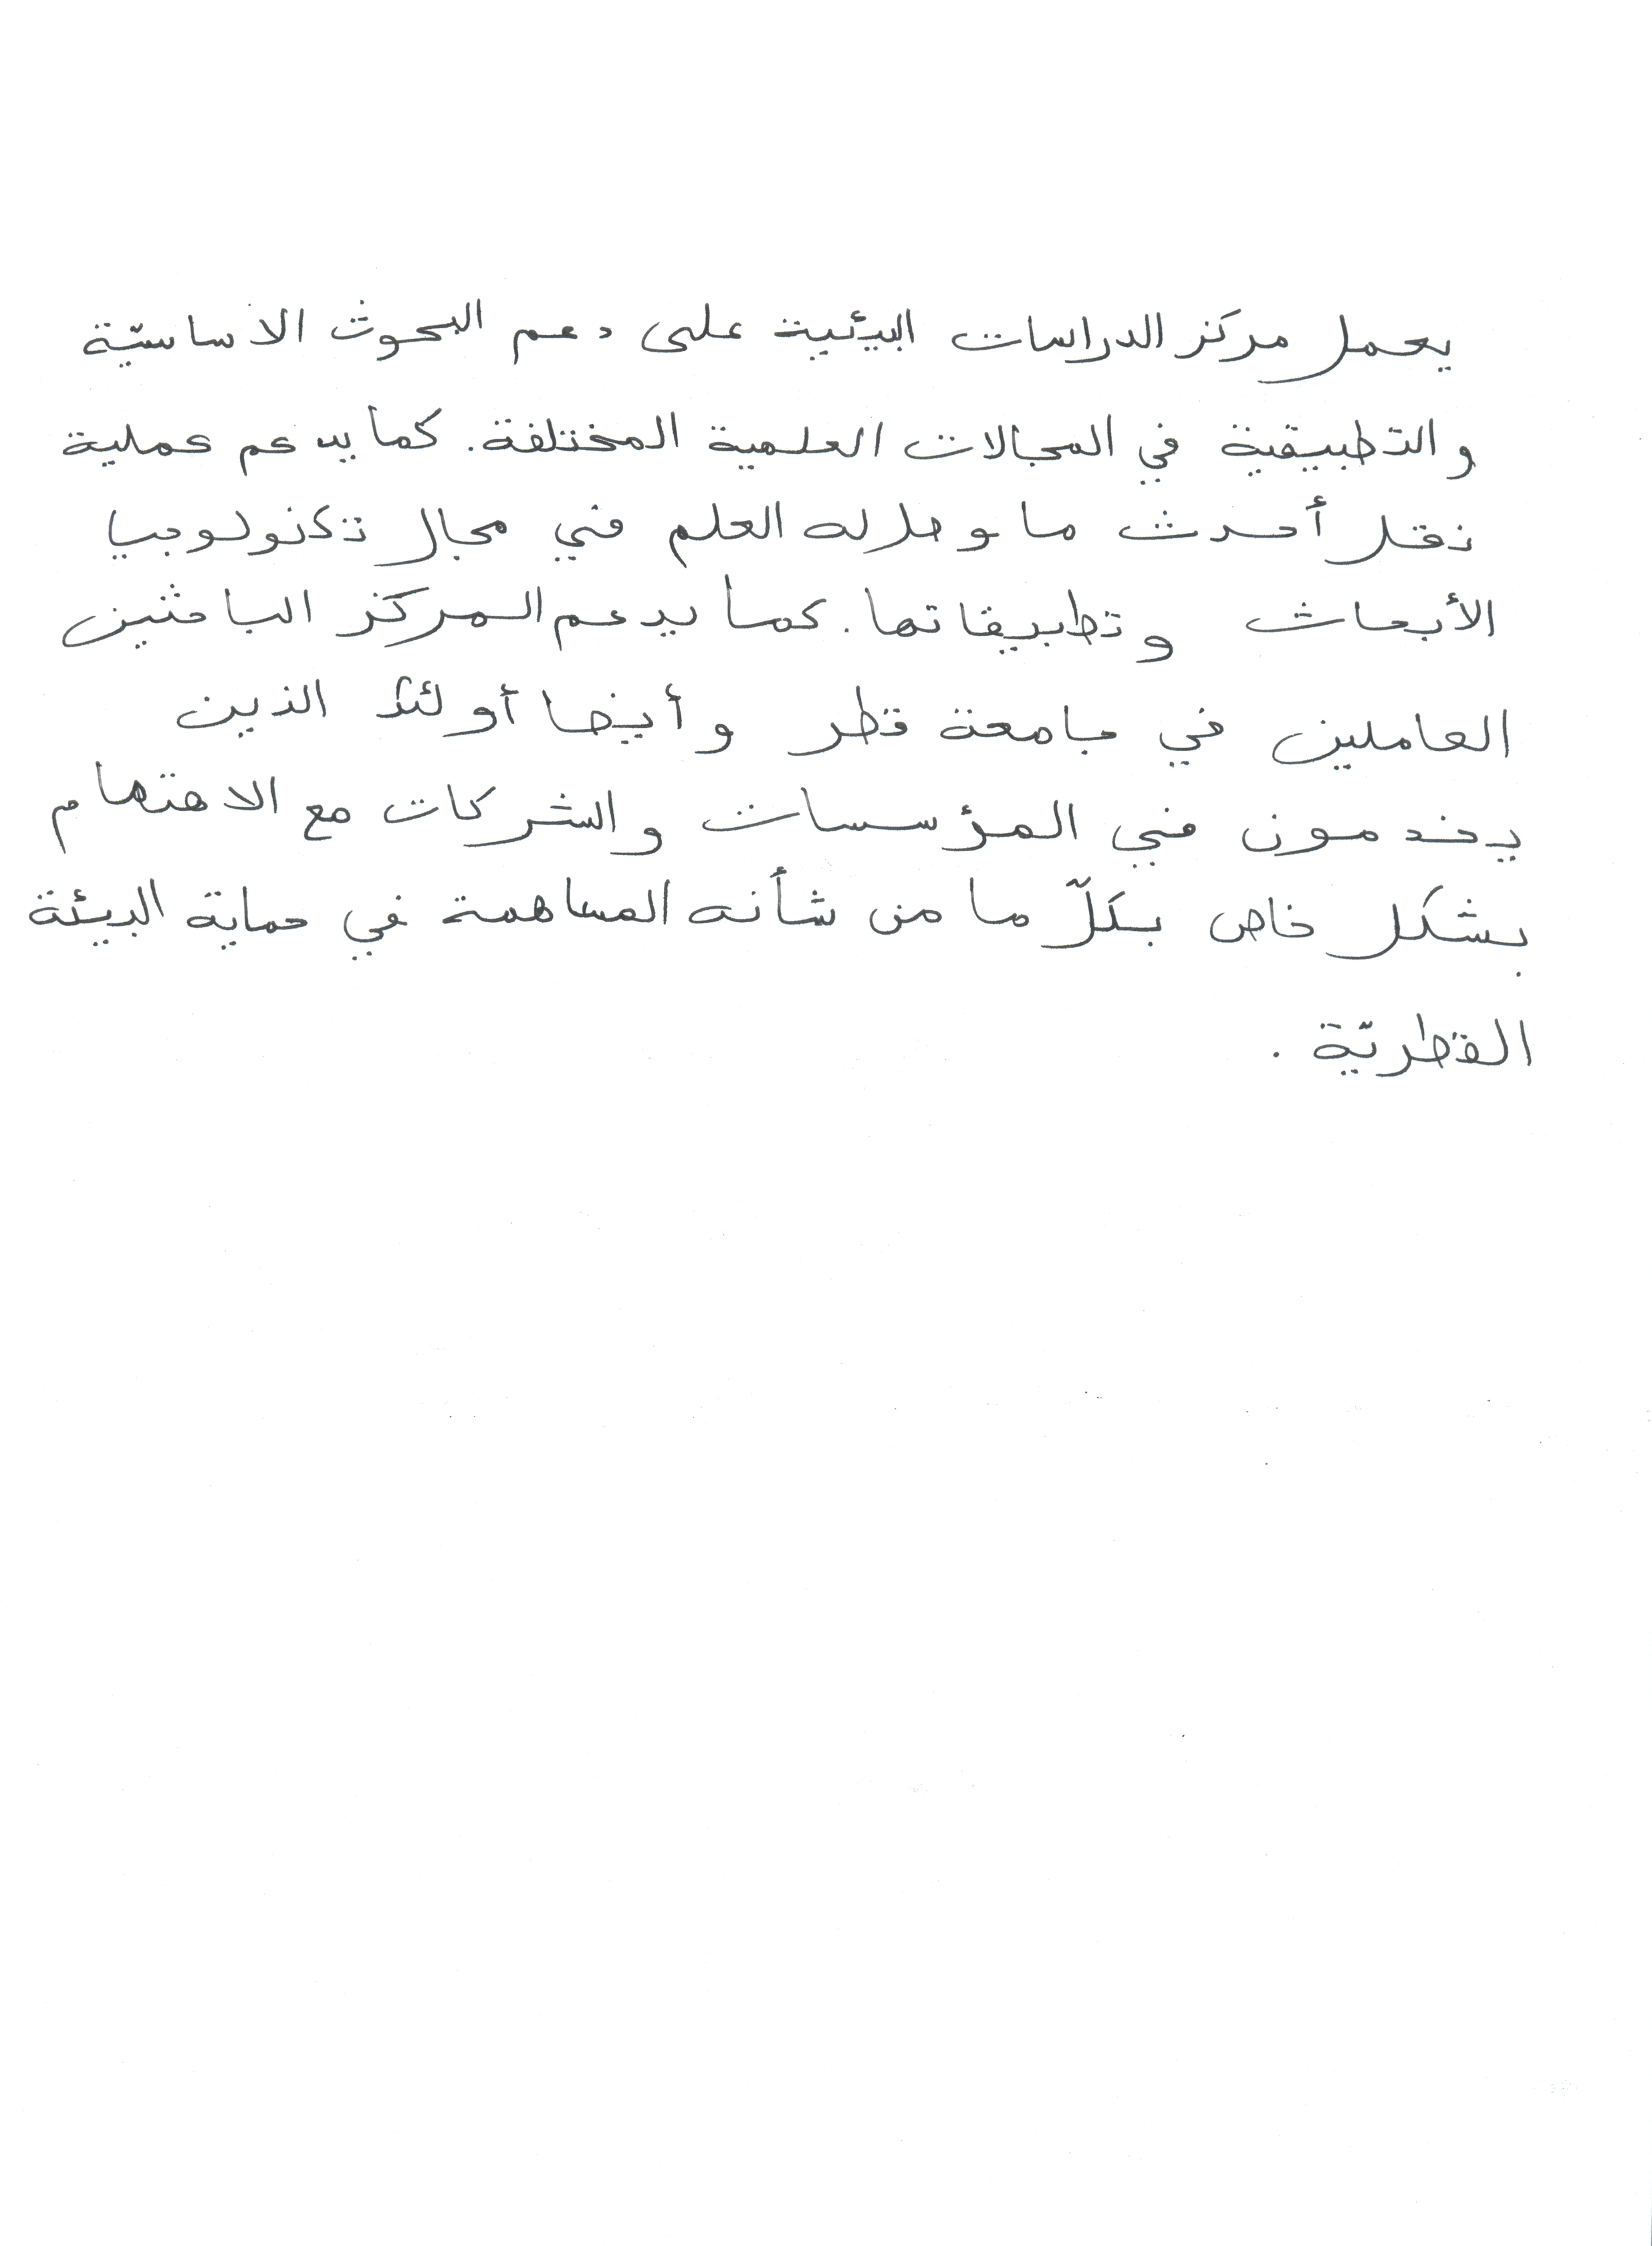 يعمل مركز الدراسات البيئية على دعم البحوث الاساسيّة
والتطبيقية في المجالات العلمية المختلفة. كما يدعم عملية
نقل أحدث ما وصل له العلم في مجال تكنولوجيا
الأبحاث وتطبيقاتها. كما يدعم المركز الباحثين
العاملين في جامعة قطر وأيضا أولئك الذين
يخدمون في المؤسسات والشركات مع الاهتمام
بشكل خاص بكلّ ما من شأنه المساهمة في حماية البيئة
القطريّة .